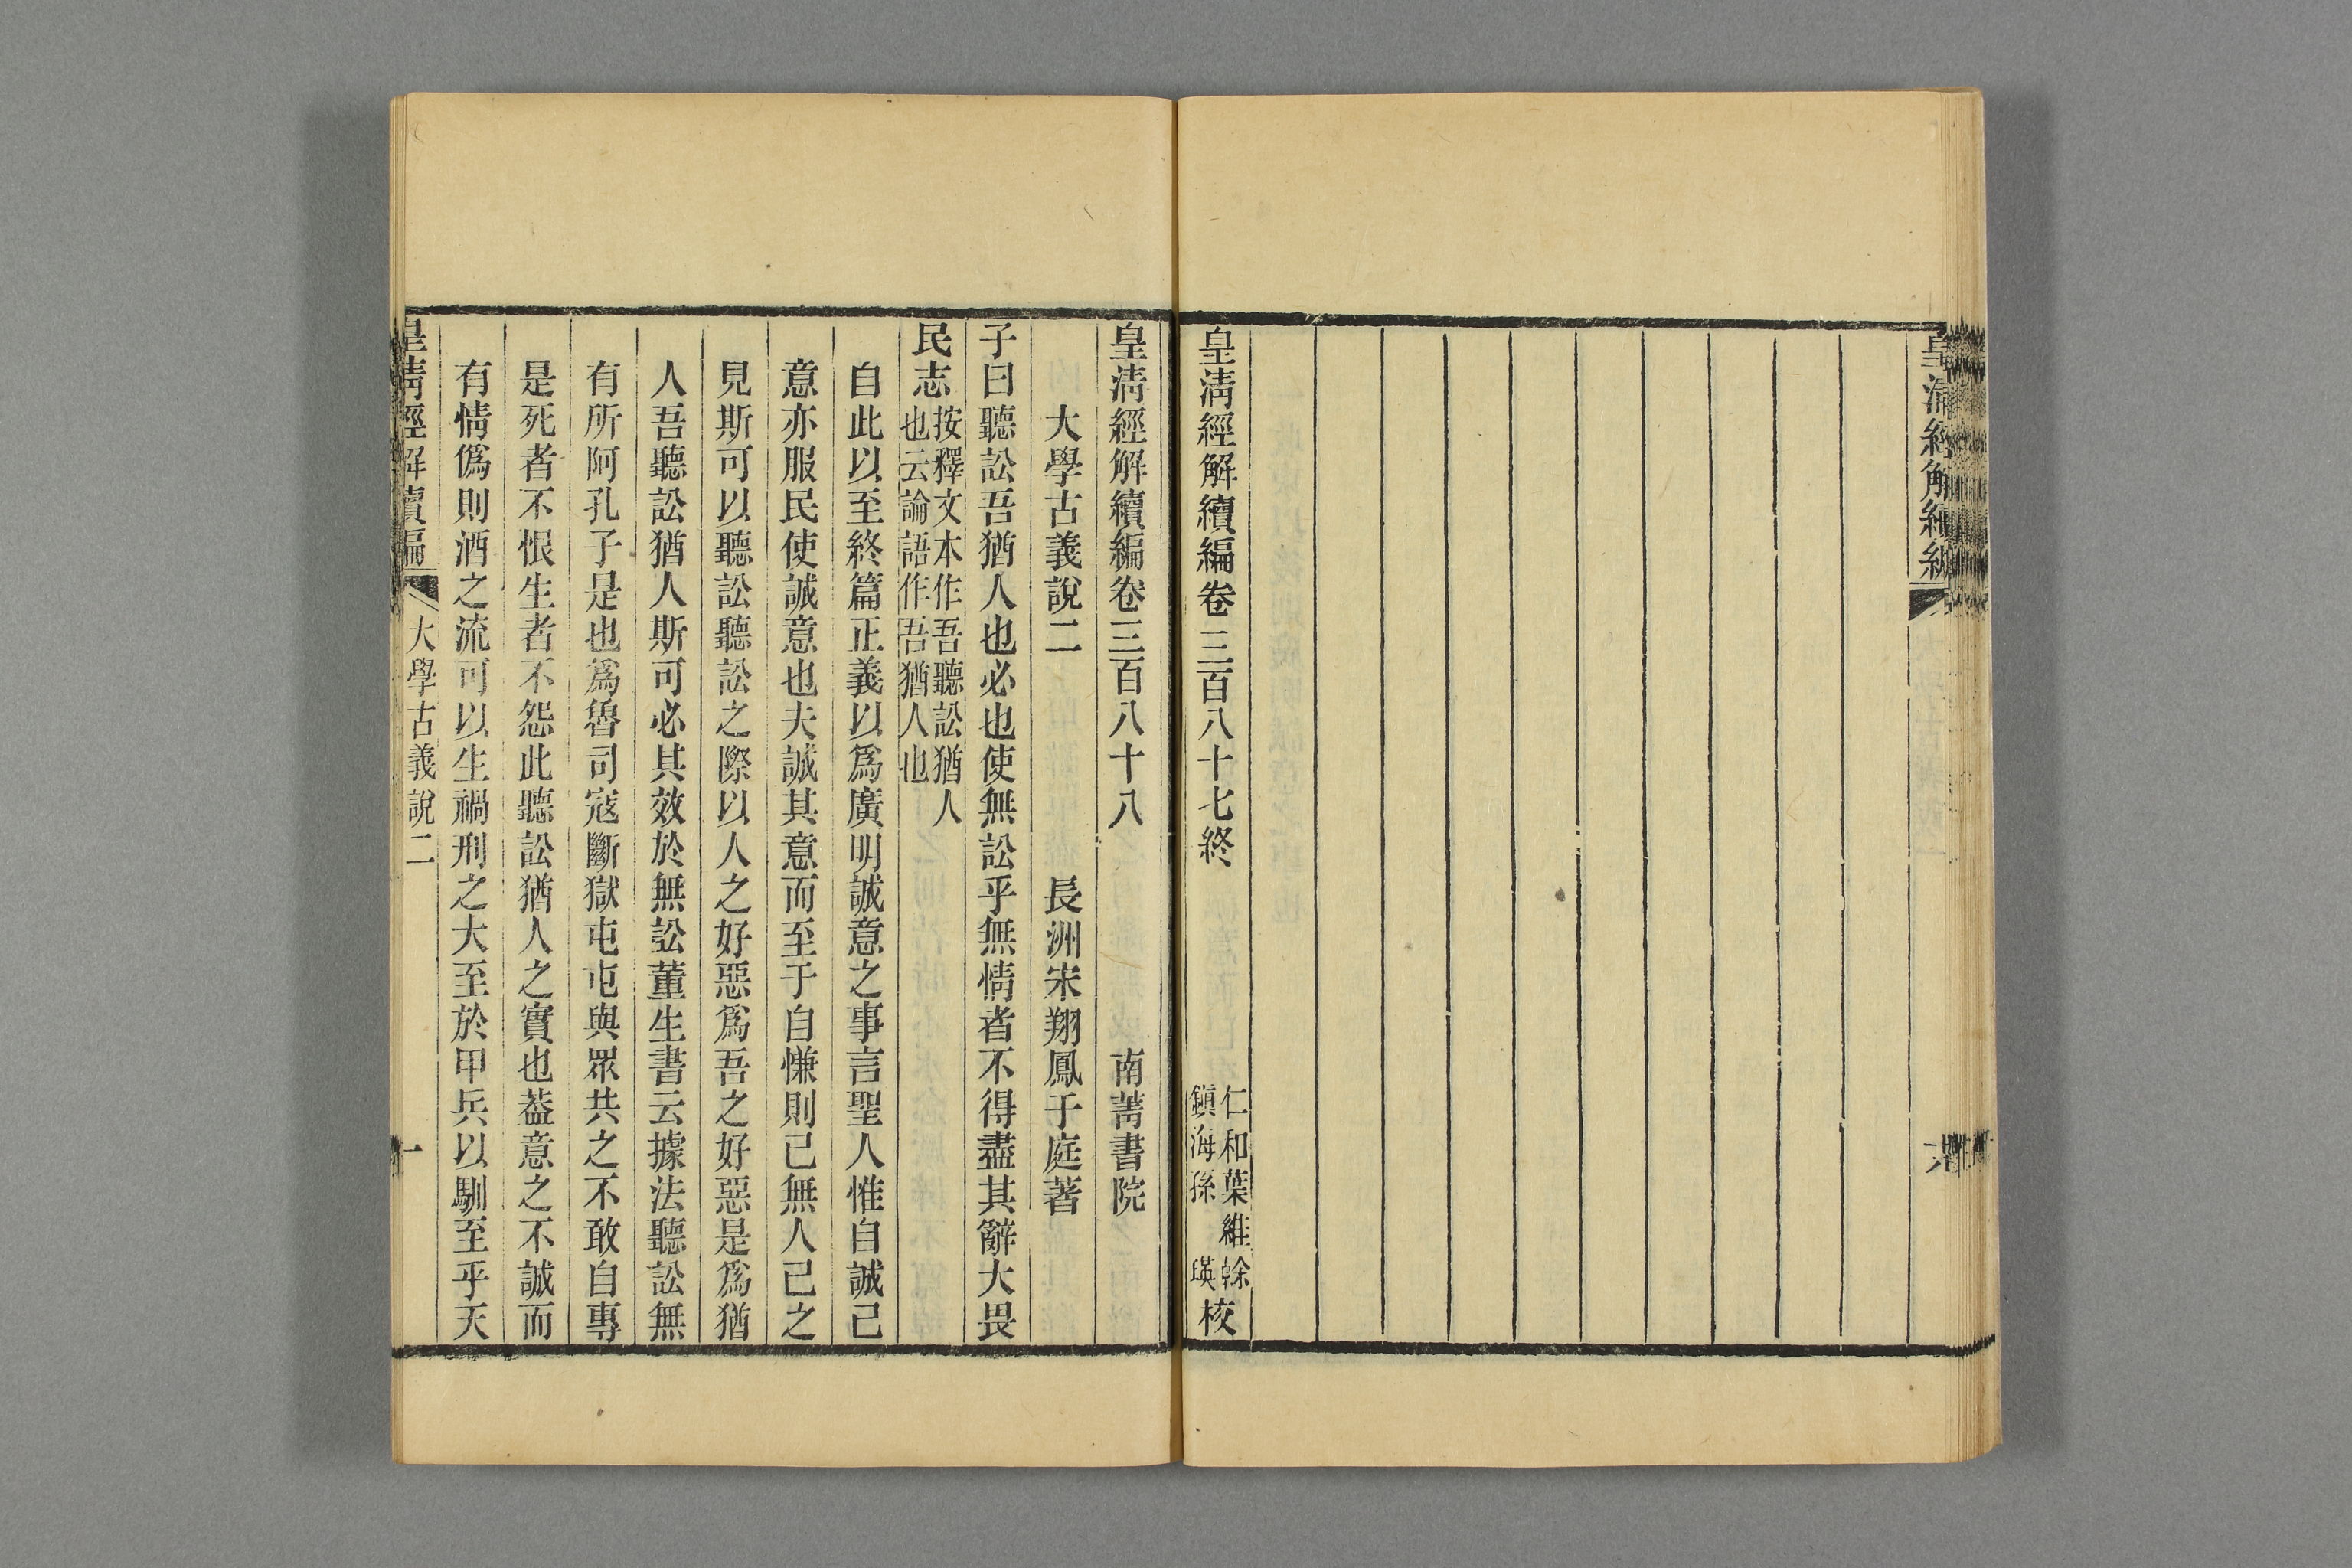 皇清經解續編
六
皇清經解續編卷三百八十七終
仁和葉維榦
鎮海孫 瑛
校
皇清經解續編卷三百八十八 南菁書院
大學古義說二 長洲宋翔鳳于庭著
子曰聽訟吾猶人也必也使無訟乎無情者不得盡其辭大畏
民志按釋文本作吾聽訟猶人
也云論語作吾猶人也
自此以至終篇正義以爲廣明誠意之事言聖人惟自誠己
意亦服民使誠意也夫誠其意而至于自慊則己無人己之
見斯可以聽訟聽訟之際以人之好惡爲吾之好惡是爲猶
人吾聽訟猶人斯可必其效於無訟董生書云據法聽訟無
有所阿孔子是也爲魯司寇斷獄屯屯與眾共之不敢自專
是死者不恨生者不怨此聽訟猶人之實也葢意之不誠而
有情僞則酒之流可以生禍刑之大至於甲兵以馴至乎天
皇清經解續編 大學古義說二 一